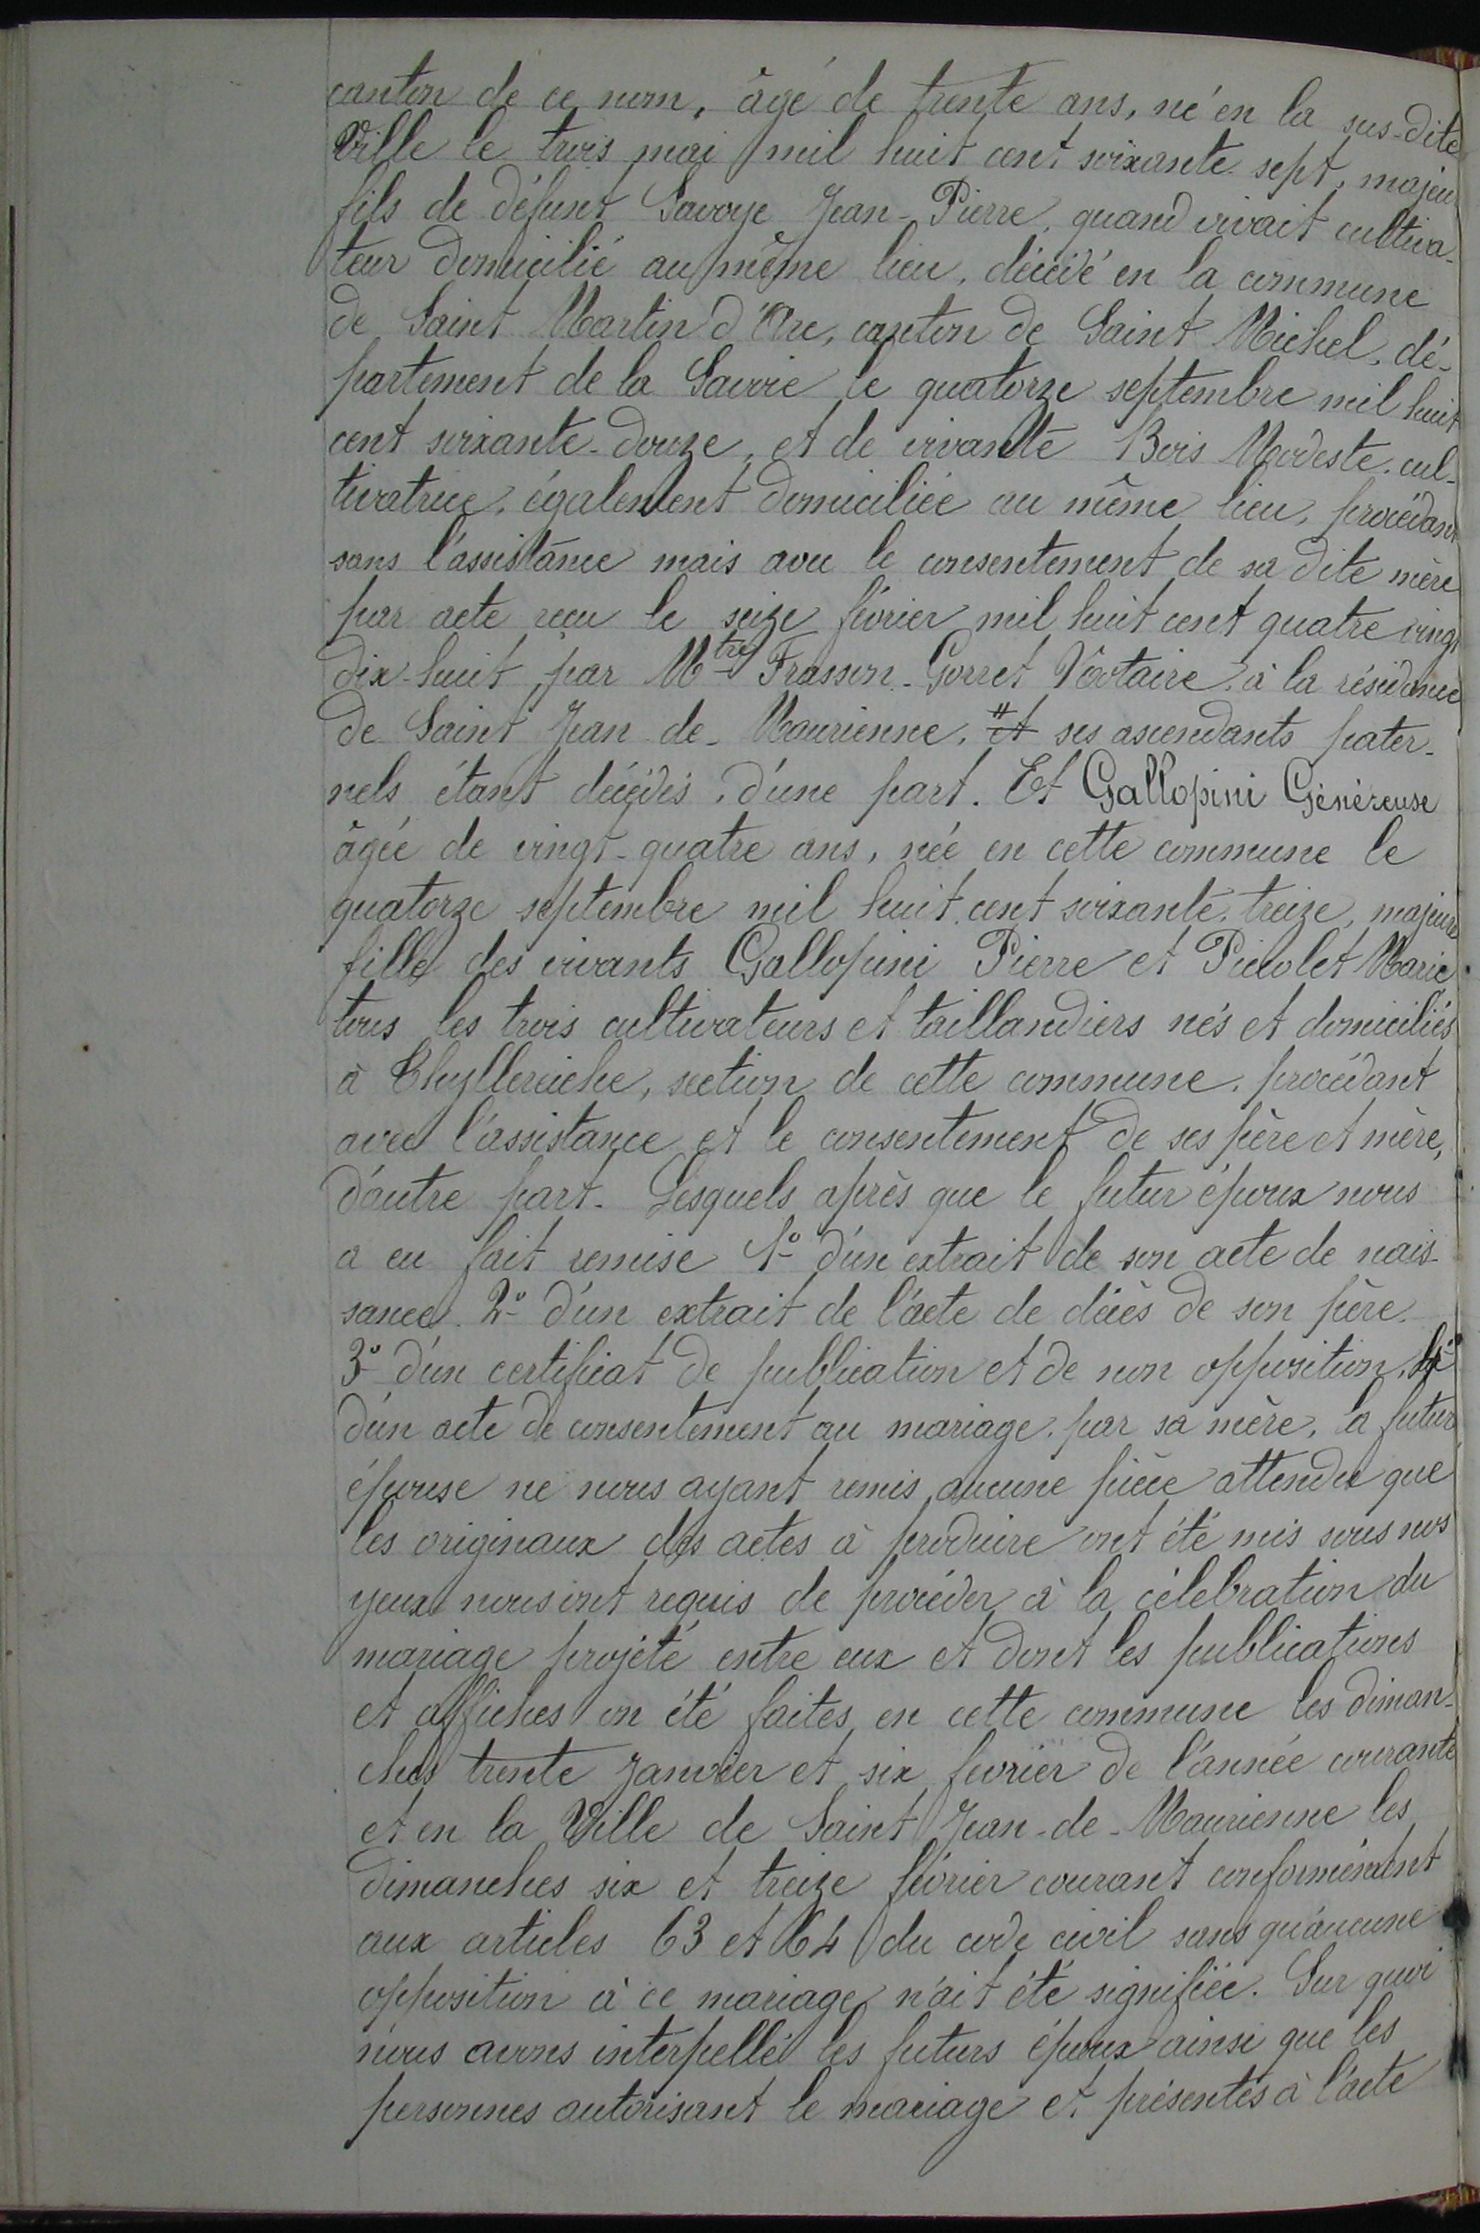 canton de ce nom, âgé de trente ans, né en la sus-dite
Ville le trois mai mil huit cent soixante sept, majeur
fils de défunt Savoye Jean-Pierre, quand vivait cultiva-
teur domicilié au même lieu, décédé en la commune
de Saint Martin d'Arc, canton de Saint Michel, dé-
partement de la Savoie le quatorze septembre mil huit
cent soixante-douze, et de vivante Bois Modeste, cul-
tivatrice, également domiciliée au même lieu, procédant
sans l'assistance mais avec le consentement de sa dite mère
par acte reçu le seize février mil huit cent quatre vingt
dix-huit par Mtre Frasson-Gorret Notaire à la résidence
de Saint Jean-de-Maurienne, et ses ascendants pater-
nels étant décédés, d'une part. Et Gallopini Généreuse
âgée de vingt-quatre ans, née en cette commune le
quatorze septembre mil huit cent soixante-treize, majeure
fille des vivants Gallopini Pierre et Picolet Marie
tous les trois cultivateurs et taillandiers nés et domiciliés
à , section de cette commune, procédant
avec l'assistance et le consentement de ses père et mère,
d'autre part. Lesquels après que le futur époux nous
a eu fait remise 1º d'un extrait de son acte de nais-
sance. 2º d'un extrait de l'acte de décès de son père.
3º d'un certificat de publication et de non opposition, 4º
d'un acte de consentement au mariage par sa mère, la future
épouse ne nous ayant remis aucune pièce attendu que
les originaux des actes à produire ont été mis sous nos
yeux nous ont requis de procéder à la célébration du
mariage projeté entre eux et dont les publications
et affiches on été faites en cette commune les diman-
ches trente Janvier et six fevrier de l'année courante
et en la Ville de Saint Jean-de-Maurienne les
dimanches six et treize février courant conformément
aux articles 63 et 64 du code civil sans qu'aucune
opposition à ce mariage n'ait été signifiée. Sur quoi
nous avons interpellé les futurs époux ainsi que les
personnes autorisant le mariage et présentes à l'acte